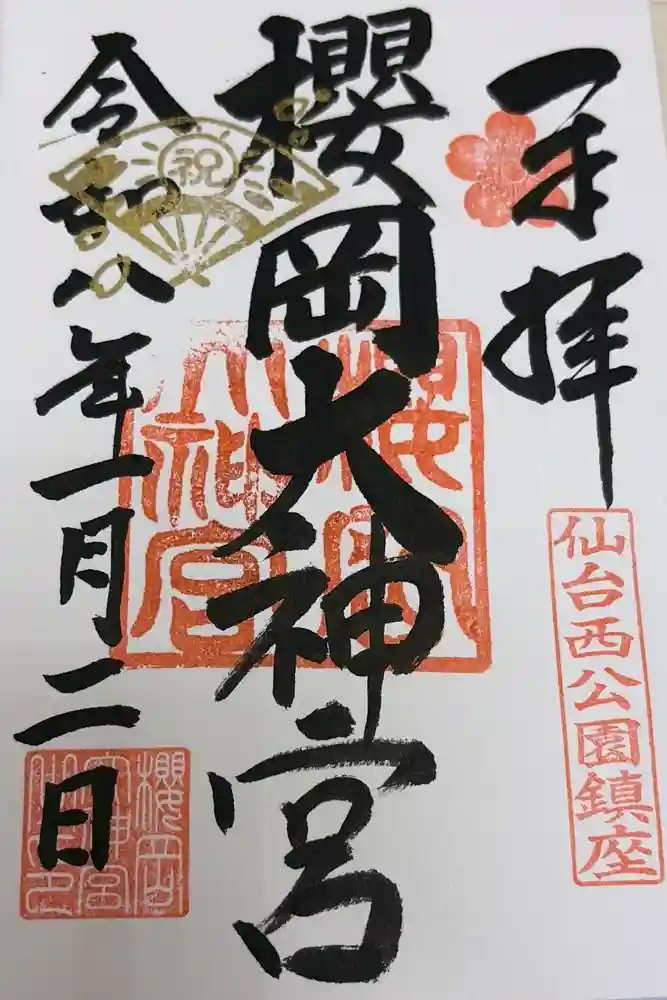 奉拝
仙台西公園鎮座
櫻岡大神宮
櫻岡
大神宮
祝
令和八年一月二日
櫻岡